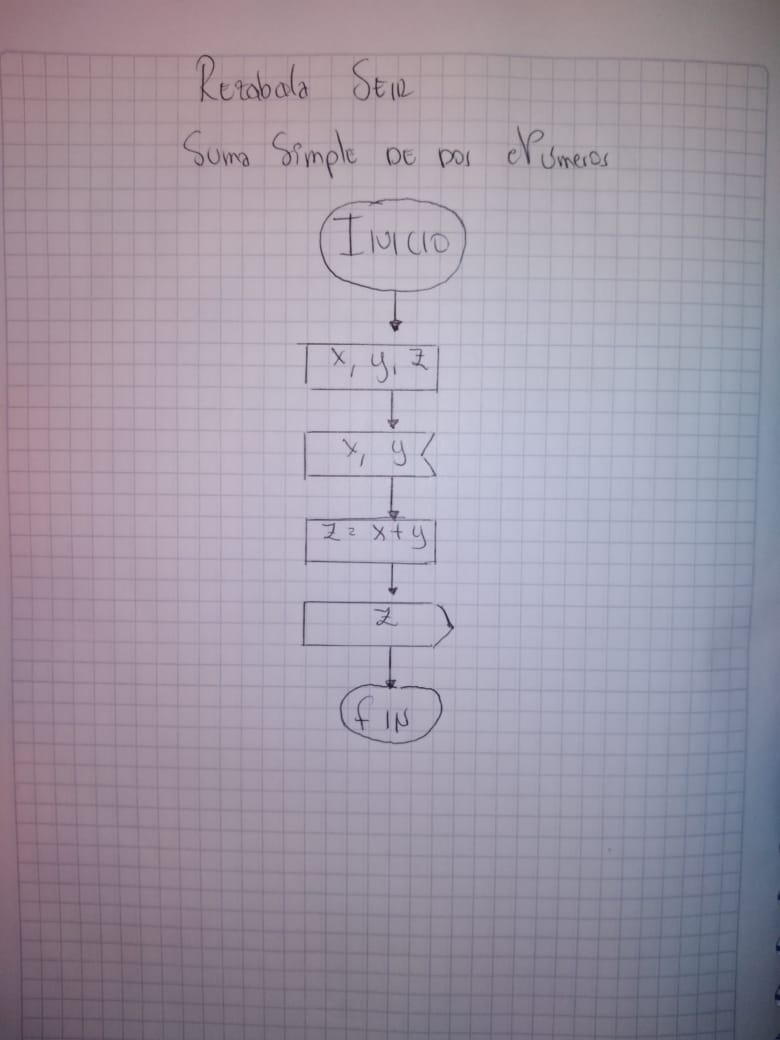 Rezabala SEIR
Suma Simple DE DOS Números
INICIO
x, y, z
x, y
z = x + y
z
fIN